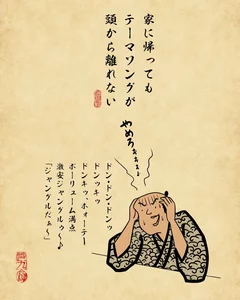 家に帰っても
テーマソングが
頭から離れない
やめろぉぉぉぉ
ドン・ドン・ドンッ
ドンッキッ
ドンキッ、ホォーテー
ボーリューム満点
激安ジャングルゥ〜♪
「ジャングルだぁ〜」